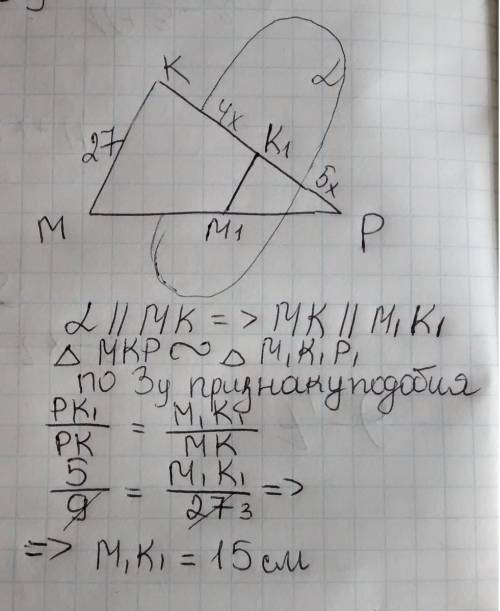 K
α
4x
K₁
27
5x
M
M₁
P
α // MK => MK // M₁K₁
△ MKP ∾ △ M₁K₁P₁
по 3у признаку подобия
PK₁/PK = M₁K₁/MK
5/9 = M₁K₁/27 3 =>
=> M₁K₁ = 15 см